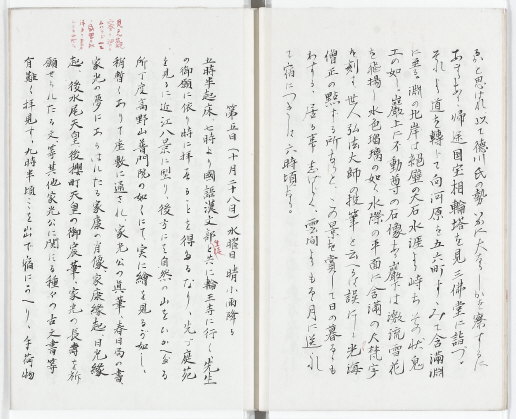 ゑと思はれ以て徳川氏の勢 かに大なりしかを察するに
あまりあり帰途国宝相輪塔を見三佛堂に詣づ
それより道を轉じて向河原を五六町すゝみて含満淵
に至る淵の北岸は絶壁の大石水涯より峙ち其の状鬼
工の如し巖上に不動尊の石像あり巖下は激流雪花
を飛揚し水色瑠璃の如く水際の平面に含満の大梵字
を刻す世人弘法大師の投筆と云へるは誤にして光海
僧正の點する所なりと この景を賞して日の暮るゝも
わするゝ 居る事 しばらく 雲間よりもるゝ月に送られ
て宿につきしは六時頃なり
第五日(十月二十八日)水曜日 晴小雨降る
五時半起床、七時より國語漢文部 生徒 と共に輪王寺に行く、先生
の御願に依り特に拝 ることを得たるなり、先づ庭苑
を見る、近江八景に型り後方に自然の山をひかへたる
所丁度高野山普門院の如くにて、実に繪を見るが如し、
稍暫くありて座敷に通され、家光公の真筆、春日局の書
家光の夢にあらはれたる家康の肖像家康縁起、日光縁
起、後水尾天皇後櫻町天皇の御宸筆、家光の長壽を祈
願せられたる文、等其他家光公に関する種々の古文書等
有難く拝見す、九時半頃こゝを出で宿にかへり、手荷物